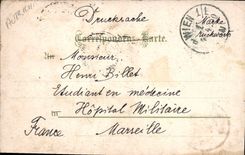 Drucksache
WIEN
Marke
rückwärts
Correspondenz-Karte.
An Monsieur
Henri Billet
Etudiant en médecine
Hôpital Militaire
France Marseille